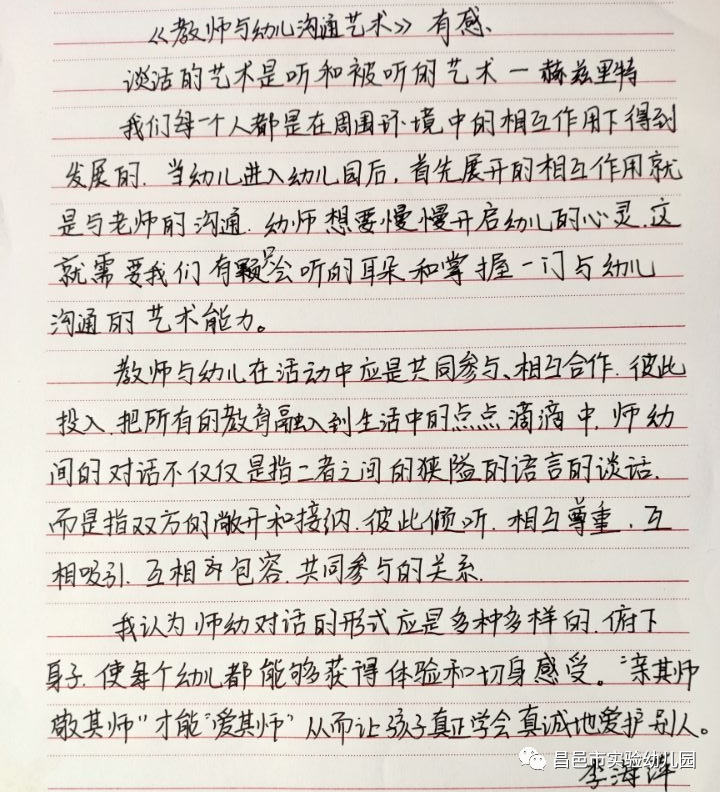 《教师与幼儿沟通艺术》有感、
谈话的艺术是听和被听的艺术一赫兹里特
我们每一个人都是在周围环境中的相互作用下得到
发展的.当幼儿进入幼儿园后,首先展开的相互作用就
是与老师的沟通.幼师想要慢慢开启幼儿的心灵.这
就需要我们有颗会听的耳朵和掌握一门与幼儿
沟通的艺术能力。
教师与幼儿在活动中应是共同参与、相互合作.彼此
投入.把所有的教育融入到生活中的点点滴滴中.师幼
间的对话不仅仅是指二者之间的狭隘的语言的谈话.
而是指双方的敞开和接纳.彼此倾听.相互尊重.互
相吸引.互相包容.共同参与的关系.
我认为师幼对话的形式应是多种多样的.俯下
身子.使每个幼儿都能够获得体验和切身感受。"亲其师
敬其师"才能"爱其师"从而让孩子真正学会真诚地爱护别人。
李海洋
昌邑市实验幼儿园